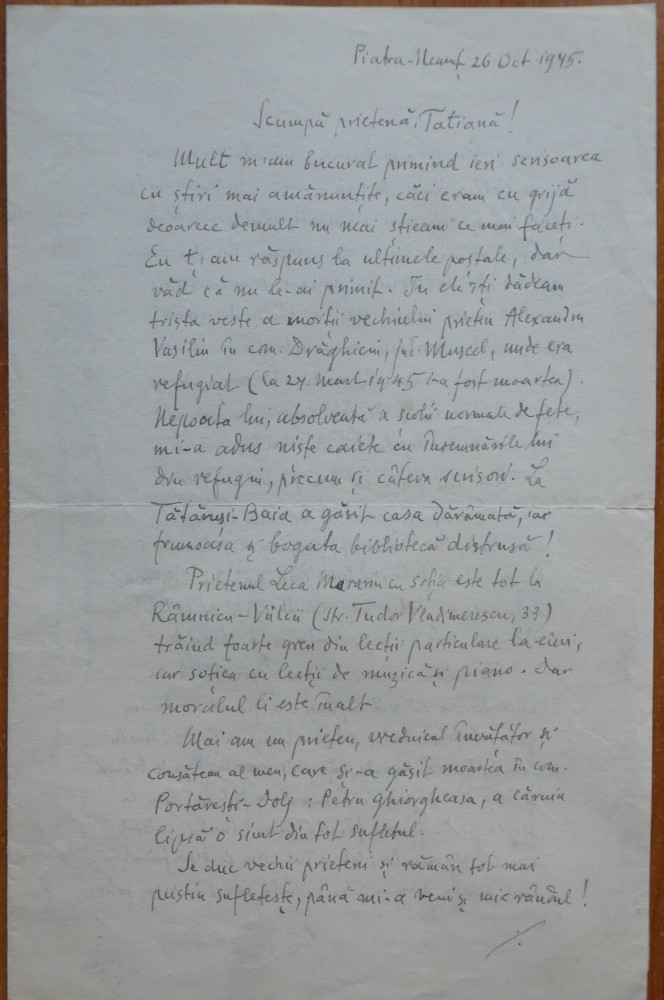 Piatra-Neamţ 26 Oct 1945.
Scumpă prietenă, Tatiană!
Mult m-am bucurat primind ieri scrisoarea
cu ştiri mai amănunţite, căci eram cu grijă
deoarece demult nu mai ştieam ce mai faceţi.
Eu ţi-am răspuns la ultimele poştale, dar
văd că nu le-ai primit. In ele îţi dădeam
trista veste a morţii vechiului prieten Alexandru
Vasiliu în com. Drăghiciu, jud. Muscel, unde era
refugiat (la 27 Mart 1945 i-a fost moartea).
Nepoata lui, absolventă a scolii normale de fete,
mi-a adus nişte caiete cu însemnările lui
din refugiu, precum şi câteva scrisori. La
Tătăruşi-Baia a găsit casa dărâmată, iar
frumoasa şi bogata bibliotecă distrusă!
Prietenul Leca Morariu cu soţia este tot la
Râmnicu-Vâlcii (str. Tudor Vladimirescu, 33)
trăind foarte greu din lecţii particulare la elevi,
iar soţiea cu lecţii de muzică şi piano. Dar
moralul li este înalt.
Mai am un prieten, vrednicul învăţător şi
consătean al meu, care şi-a găsit moartea în com.
Portăreşti-Dolj: Petru Ghiorgheasa, a căruia
lipsă o simt din tot sufletul.
Se duc vechii prieteni şi rămân tot mai
pustiu sufleteşte, până mi-a veni şi mie rândul!
./.